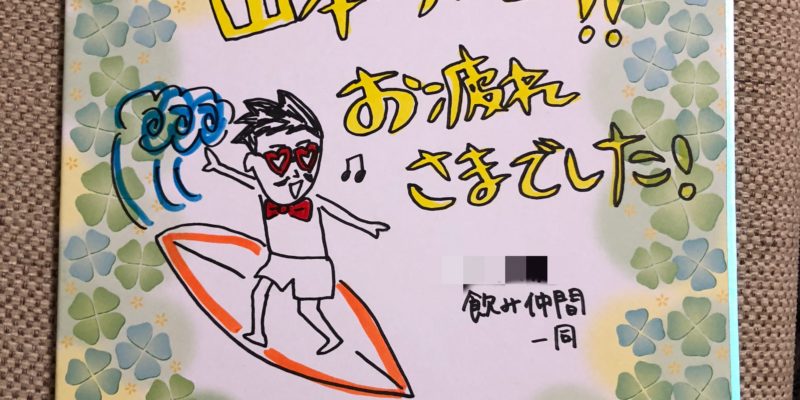 お疲れ
さまでした!
飲み仲間
一同